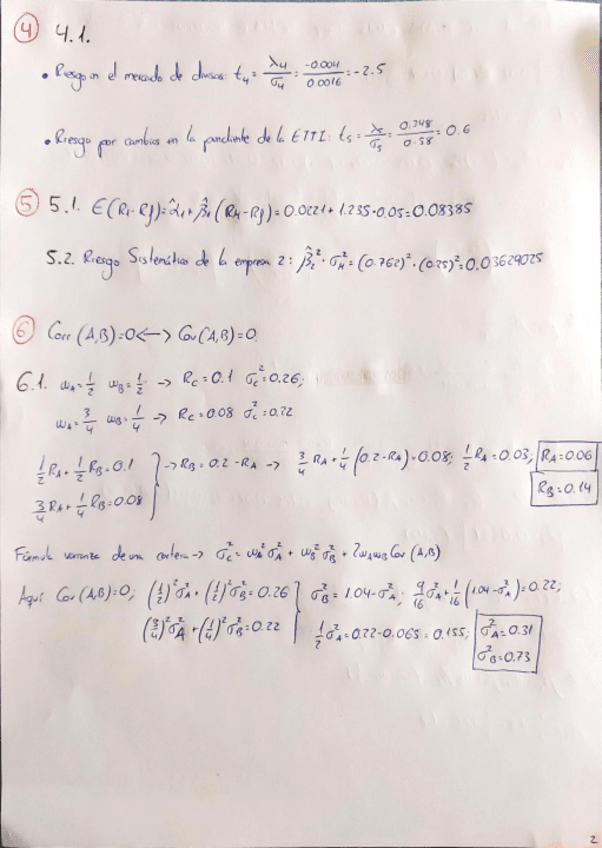 ④ 4.1.
• Riesgo en el mercado de divisas: t₄ = λ₄/σ₄ = -0.004/0.0016 = -2.5
• Riesgo por cambios en la pendiente de la ETTI: t₅ = λ₅/σ₅ = 0.348/0.58 = 0.6
⑤ 5.1. E(R₁-Rf) = α̂₁ + β̂₁(RM-Rf) = 0.0221 + 1.235·0.05 = 0.08385
5.2. Riesgo Sistemático de la empresa 2: β̂₂²·σM² = (0.762)²·(0.25)² = 0.03629025
⑥ Corr(A,B)=0 <-> Cov(A,B)=0
6.1. ωA=1/2 ωB=1/2 -> RC=0.1 σC²=0.26;
ωA=3/4 ωB=1/4 -> RC=0.08 σC²=0.22
1/2 RA + 1/2 RB = 0.1 } -> RB = 0.2 - RA -> 3/4 RA + 1/4 (0.2-RA) = 0.08; 1/2 RA = 0.03; RA=0.06
3/4 RA + 1/4 RB = 0.08 RB=0.14
Fórmula varianza de una cartera -> σC² = ωA²σA² + ωB²σB² + 2ωAωB Cov(A,B)
Aquí Cov(A,B)=0; (1/2)²σA² + (1/2)²σB² = 0.26 } σB² = 1.04-σA²; 9/16 σA² + 1/16 (1.04-σA²) = 0.22;
(3/4)²σA² + (1/4)²σB² = 0.22 1/2 σA² = 0.22-0.065 = 0.155; σA²=0.31
σB²=0.73
2